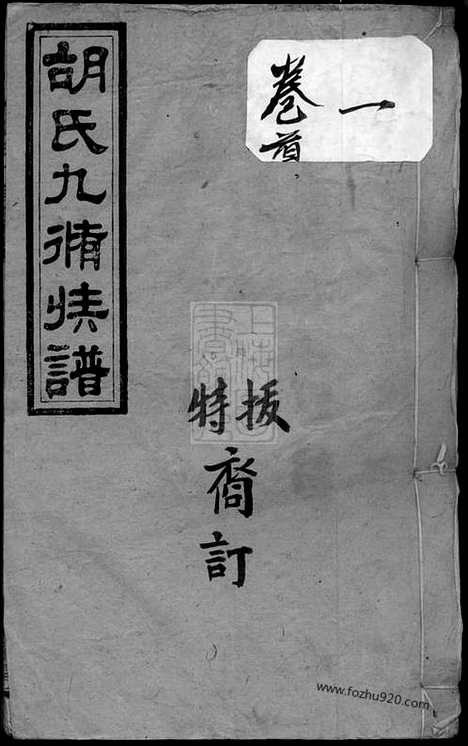 胡氏九脩族譜
一
卷首
拔特
裔訂
www.fozhu920.com